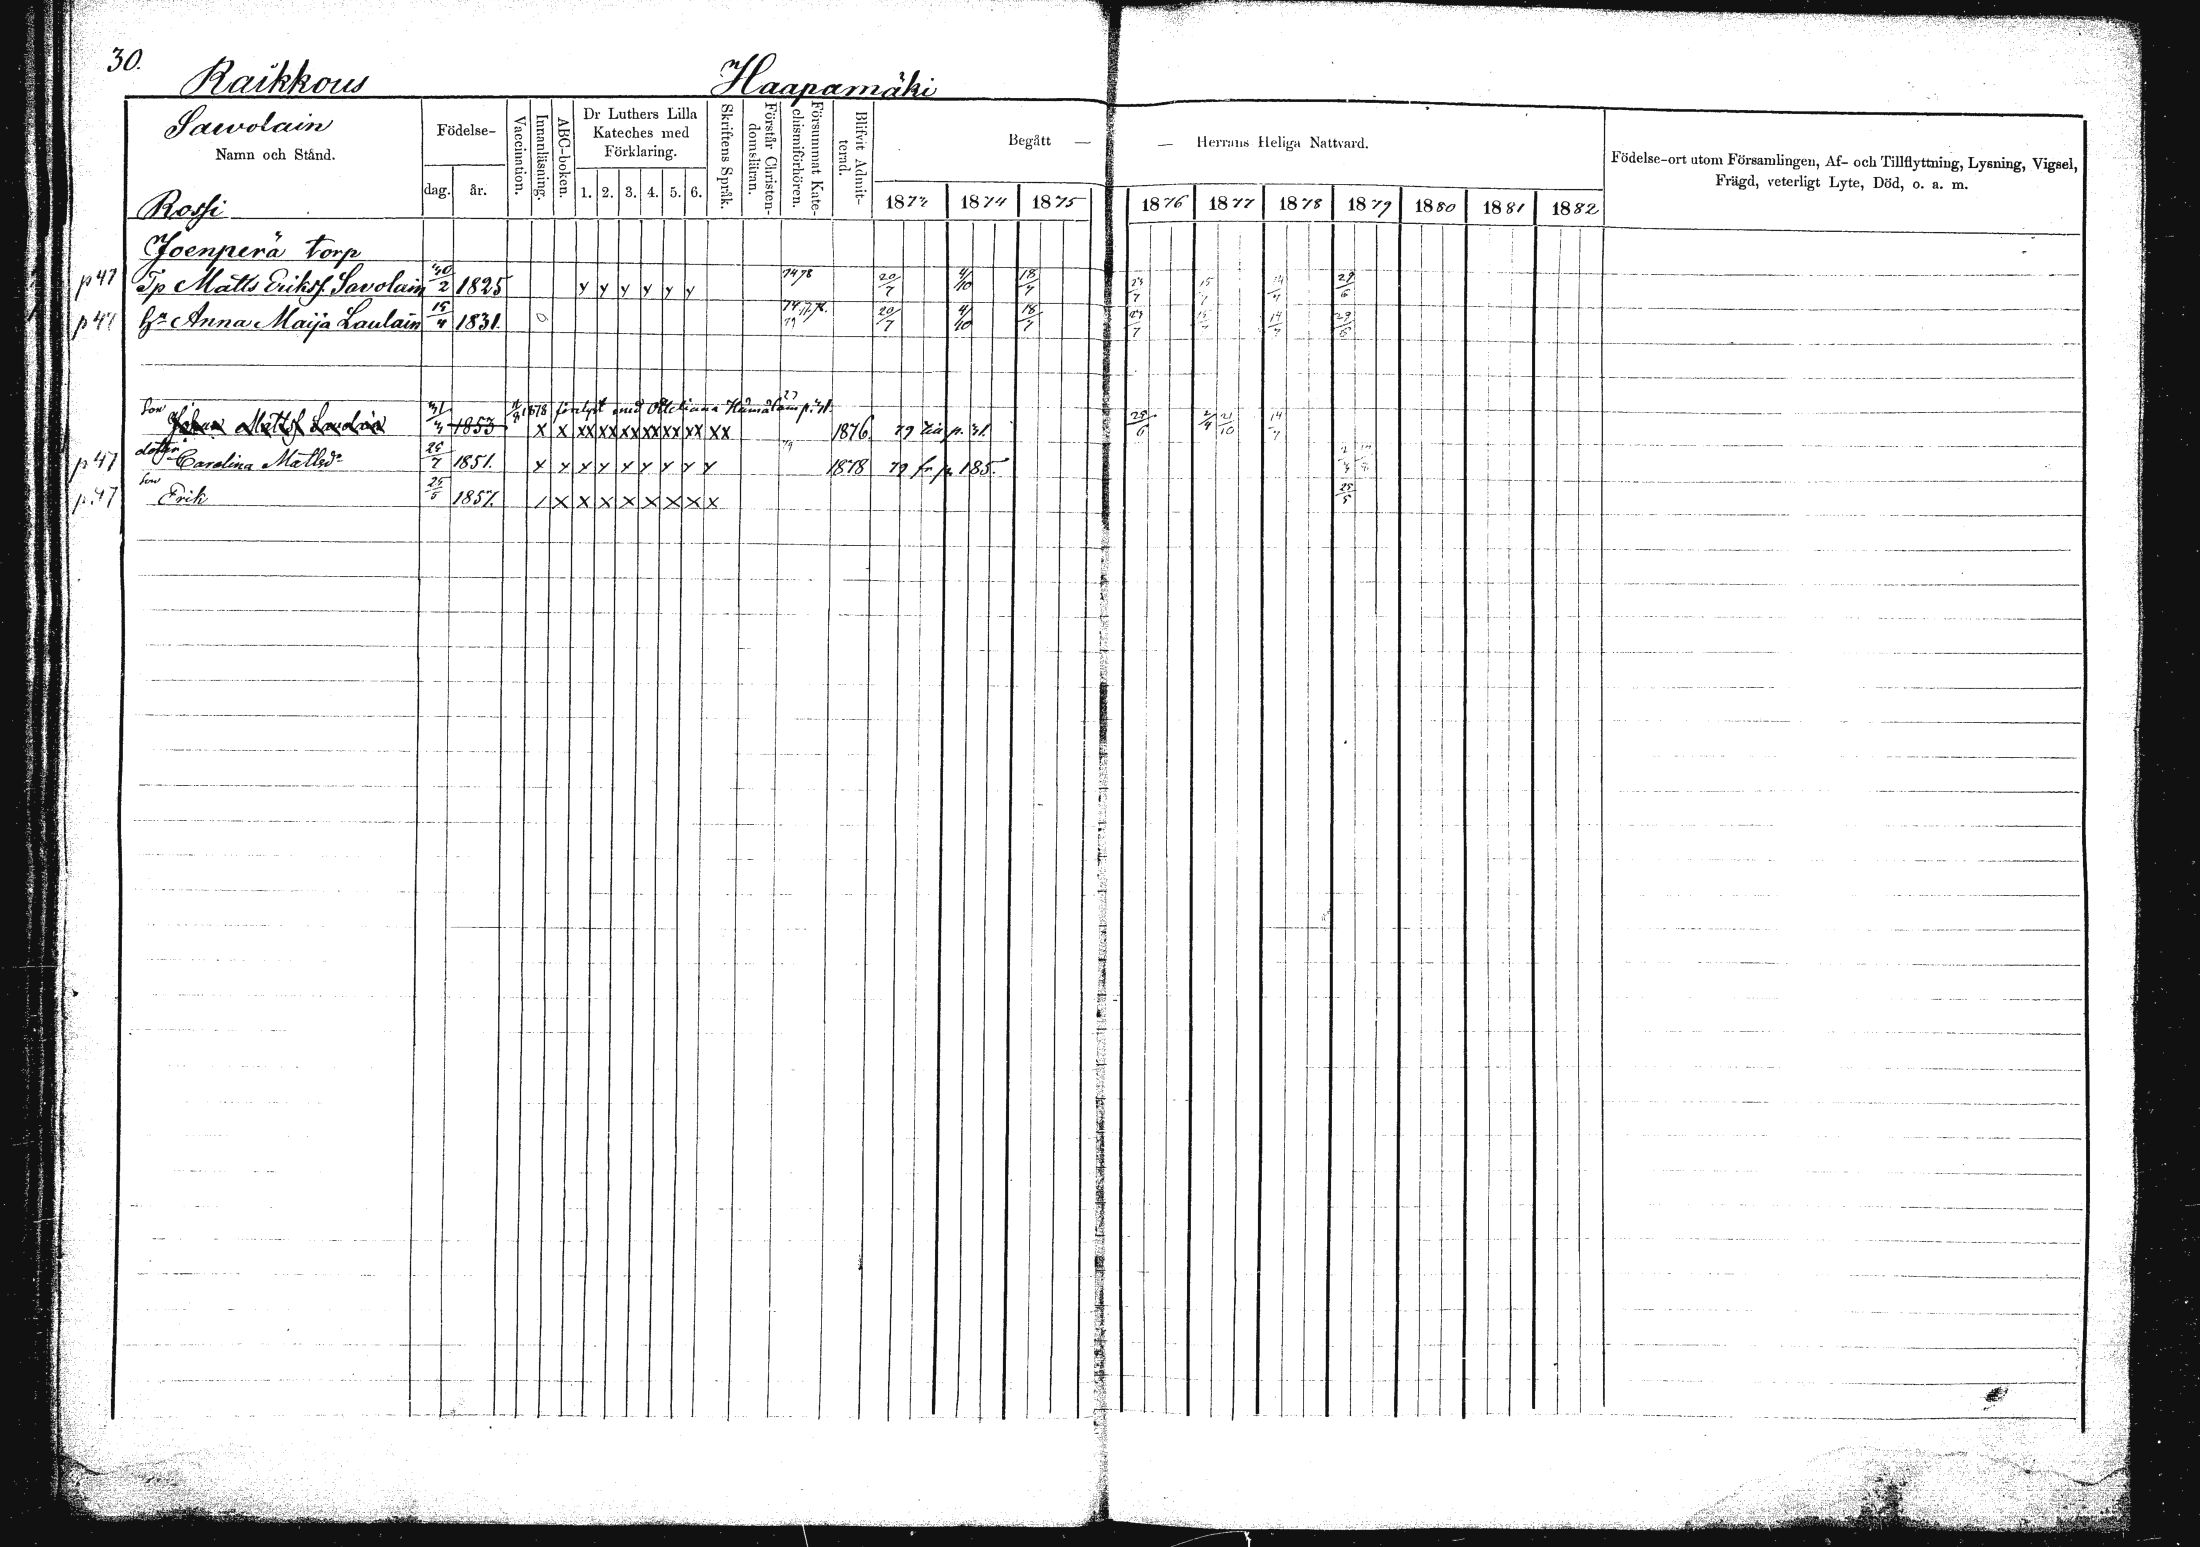 30.
Raikkous Haapamäki
Sawolain
Namn och Stånd.
Födelse-
dag. år.
Vaccination.
Innanläsning.
ABC-boken.
Dr Luthers Lilla Kateches med Förklaring.
1. 2. 3. 4. 5. 6.
Skriftens Språk.
Förstår Christendomsläran.
Försummat Katechismiförhören.
Blifvit Admitterad.
Begått — — Herrans Heliga Nattvard.
1873 1874 1875 1876 1877 1878 1879 1880 1881 1882
Födelse-ort utom Församlingen, Af- och Tillflyttning, Lysning, Vigsel,
Frägd, veterligt Lyte, Död, o. a. m.
Rossi
Joenperä torp
p 47 Tp Matts Erikss. Savolain 30/2 1825 y y y y y y 74 78 20/7 4/10 18/7 23/7 15/7 14/7 29/6
p 47 hu Anna Maija Laulain 15/4 1831. 20/7 4/10 18/7 23/7 15/7 14/7 29/6
Son 1878 förlyst med p. 31.
Johan Mattss 1853 x x xx xx xx xx xx xx xx 1876. 79 p. 31. 25/6 2/4 21/10 14/7
p 47 dottr Carolina Mattsdr 25/7 1851. y y y y y y y y y 1878 79 fr p. 185.
p. 47 Son Erik 25/5 1857. / x x x x x x x x 25/5